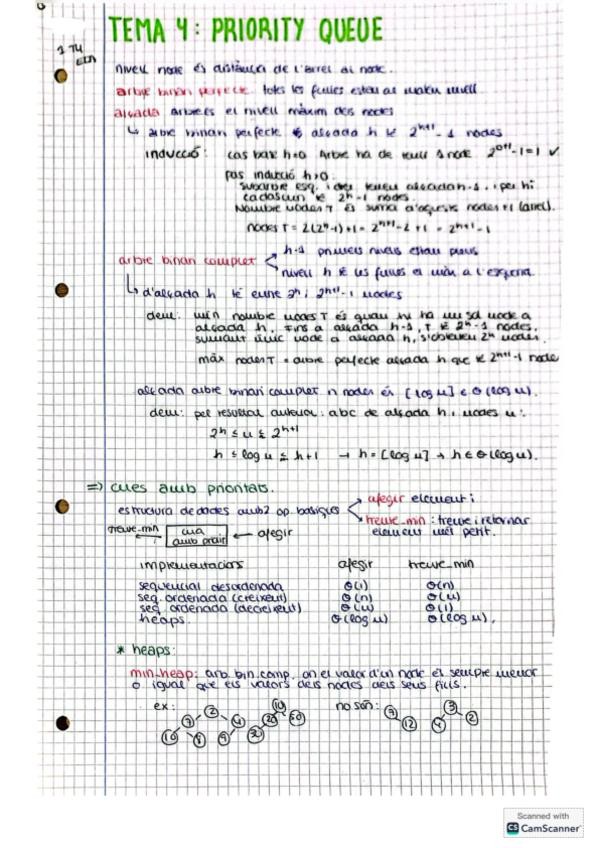 TEMA 4: PRIORITY QUEUE
nivell node és distància de l'arrel al node.
arbre binari perfecte. totes les fulles estan al mateix nivell.
alçada arbre és el nivell màxim dels nodes
↳ arbre binari perfecte alçada h té 2^(h+1) - 1 nodes
inducció: cas base h=0 Arbre ha de tenir 1 node 2^(0+1) - 1 = 1 ✓
pas inducció h>0.
subarbre esq. i dret tenen alçada h-1. i per hi
cadascun té 2^h - 1 nodes.
Nombre nodes T és suma d'aquests nodes +1 (arrel).
nodes T = 2(2^h - 1) + 1 = 2^(h+1) - 2 + 1 = 2^(h+1) - 1
arbre binari complet
h-1 primers nivells estan plens
nivell h té les fulles el més a l'esquerra.
↳ d'alçada h té entre 2^h i 2^(h+1) - 1 nodes
dem: mín nombre nodes T és quan hi ha un sol node a
alçada h. Fins a alçada h-1, T té 2^h - 1 nodes,
sumant únic node a alçada h, s'obtenen 2^h nodes.
màx nodes T = arbre perfecte alçada h que té 2^(h+1) - 1 node
alçada arbre binari complet n nodes és [log n] ∈ Θ(log n).
dem: pel resultat anterior: abc de alçada h i nodes n:
2^h ≤ n ≤ 2^(h+1)
h ≤ log n ≤ h+1 → h = [log n] → h ∈ Θ(log n).
⇒ cues amb prioritats.
estructura de dades amb 2 op. bàsiques
afegir element i
treure_min: treure i retornar
element més petit.
treure-min ← cua amb prior ← afegir
implementacions afegir treure_min
seqüencial desordenada Θ(1) Θ(n)
seq. ordenada (creixent) Θ(n) Θ(n)
seq. ordenada (decreixent) Θ(n) Θ(1)
heaps Θ(log n) Θ(log n).
* heaps:
min_heap: arb. bin. comp. on el valor d'un node és sempre menor
o igual que els valors dels nodes dels seus fills.
ex: no són:
2 10 7 3
7 4 20 50 12 4 2
10 8 9 30
Scanned with
CS CamScanner